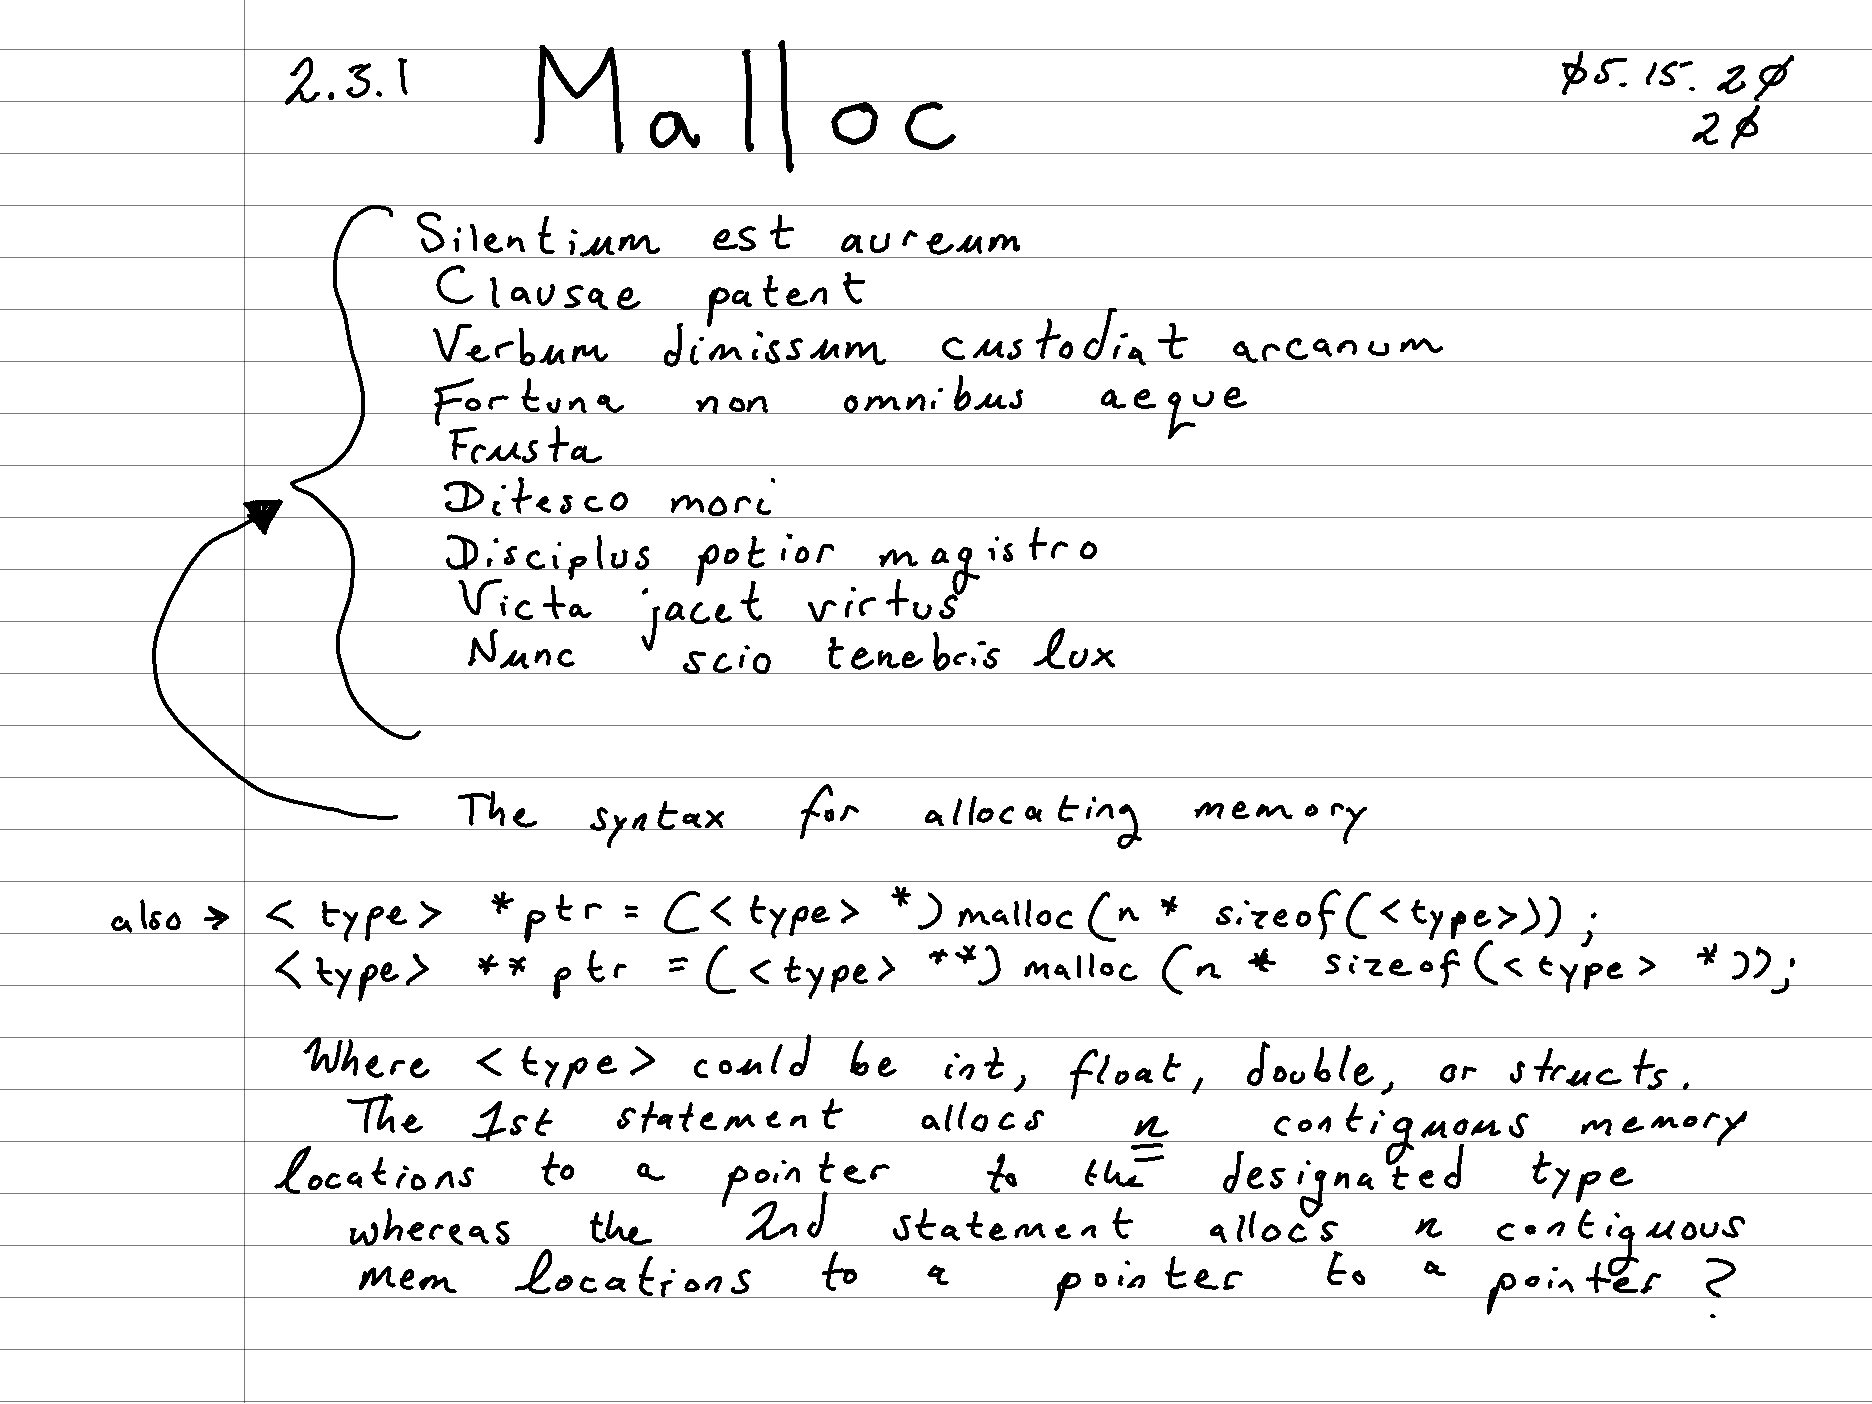 2.3.1 Malloc 05.15.20
20
Silentium est aureum
Clausae patent
Verbum dimissum custodiat arcanum
Fortuna non omnibus aeque
Frusta
Ditesco mori
Disciplus potior magistro
Victa jacet virtus
Nunc scio tenebris lux
The syntax for allocating memory
also → <type> *ptr = (<type> *) malloc(n * sizeof(<type>));
<type> ** ptr = (<type> **) malloc (n * sizeof(<type> *));
Where <type> could be int, float, double, or structs.
The 1st statement allocs n contiguous memory
locations to a pointer to the designated type
whereas the 2nd statement allocs n contiguous
mem locations to a pointer to a pointer?